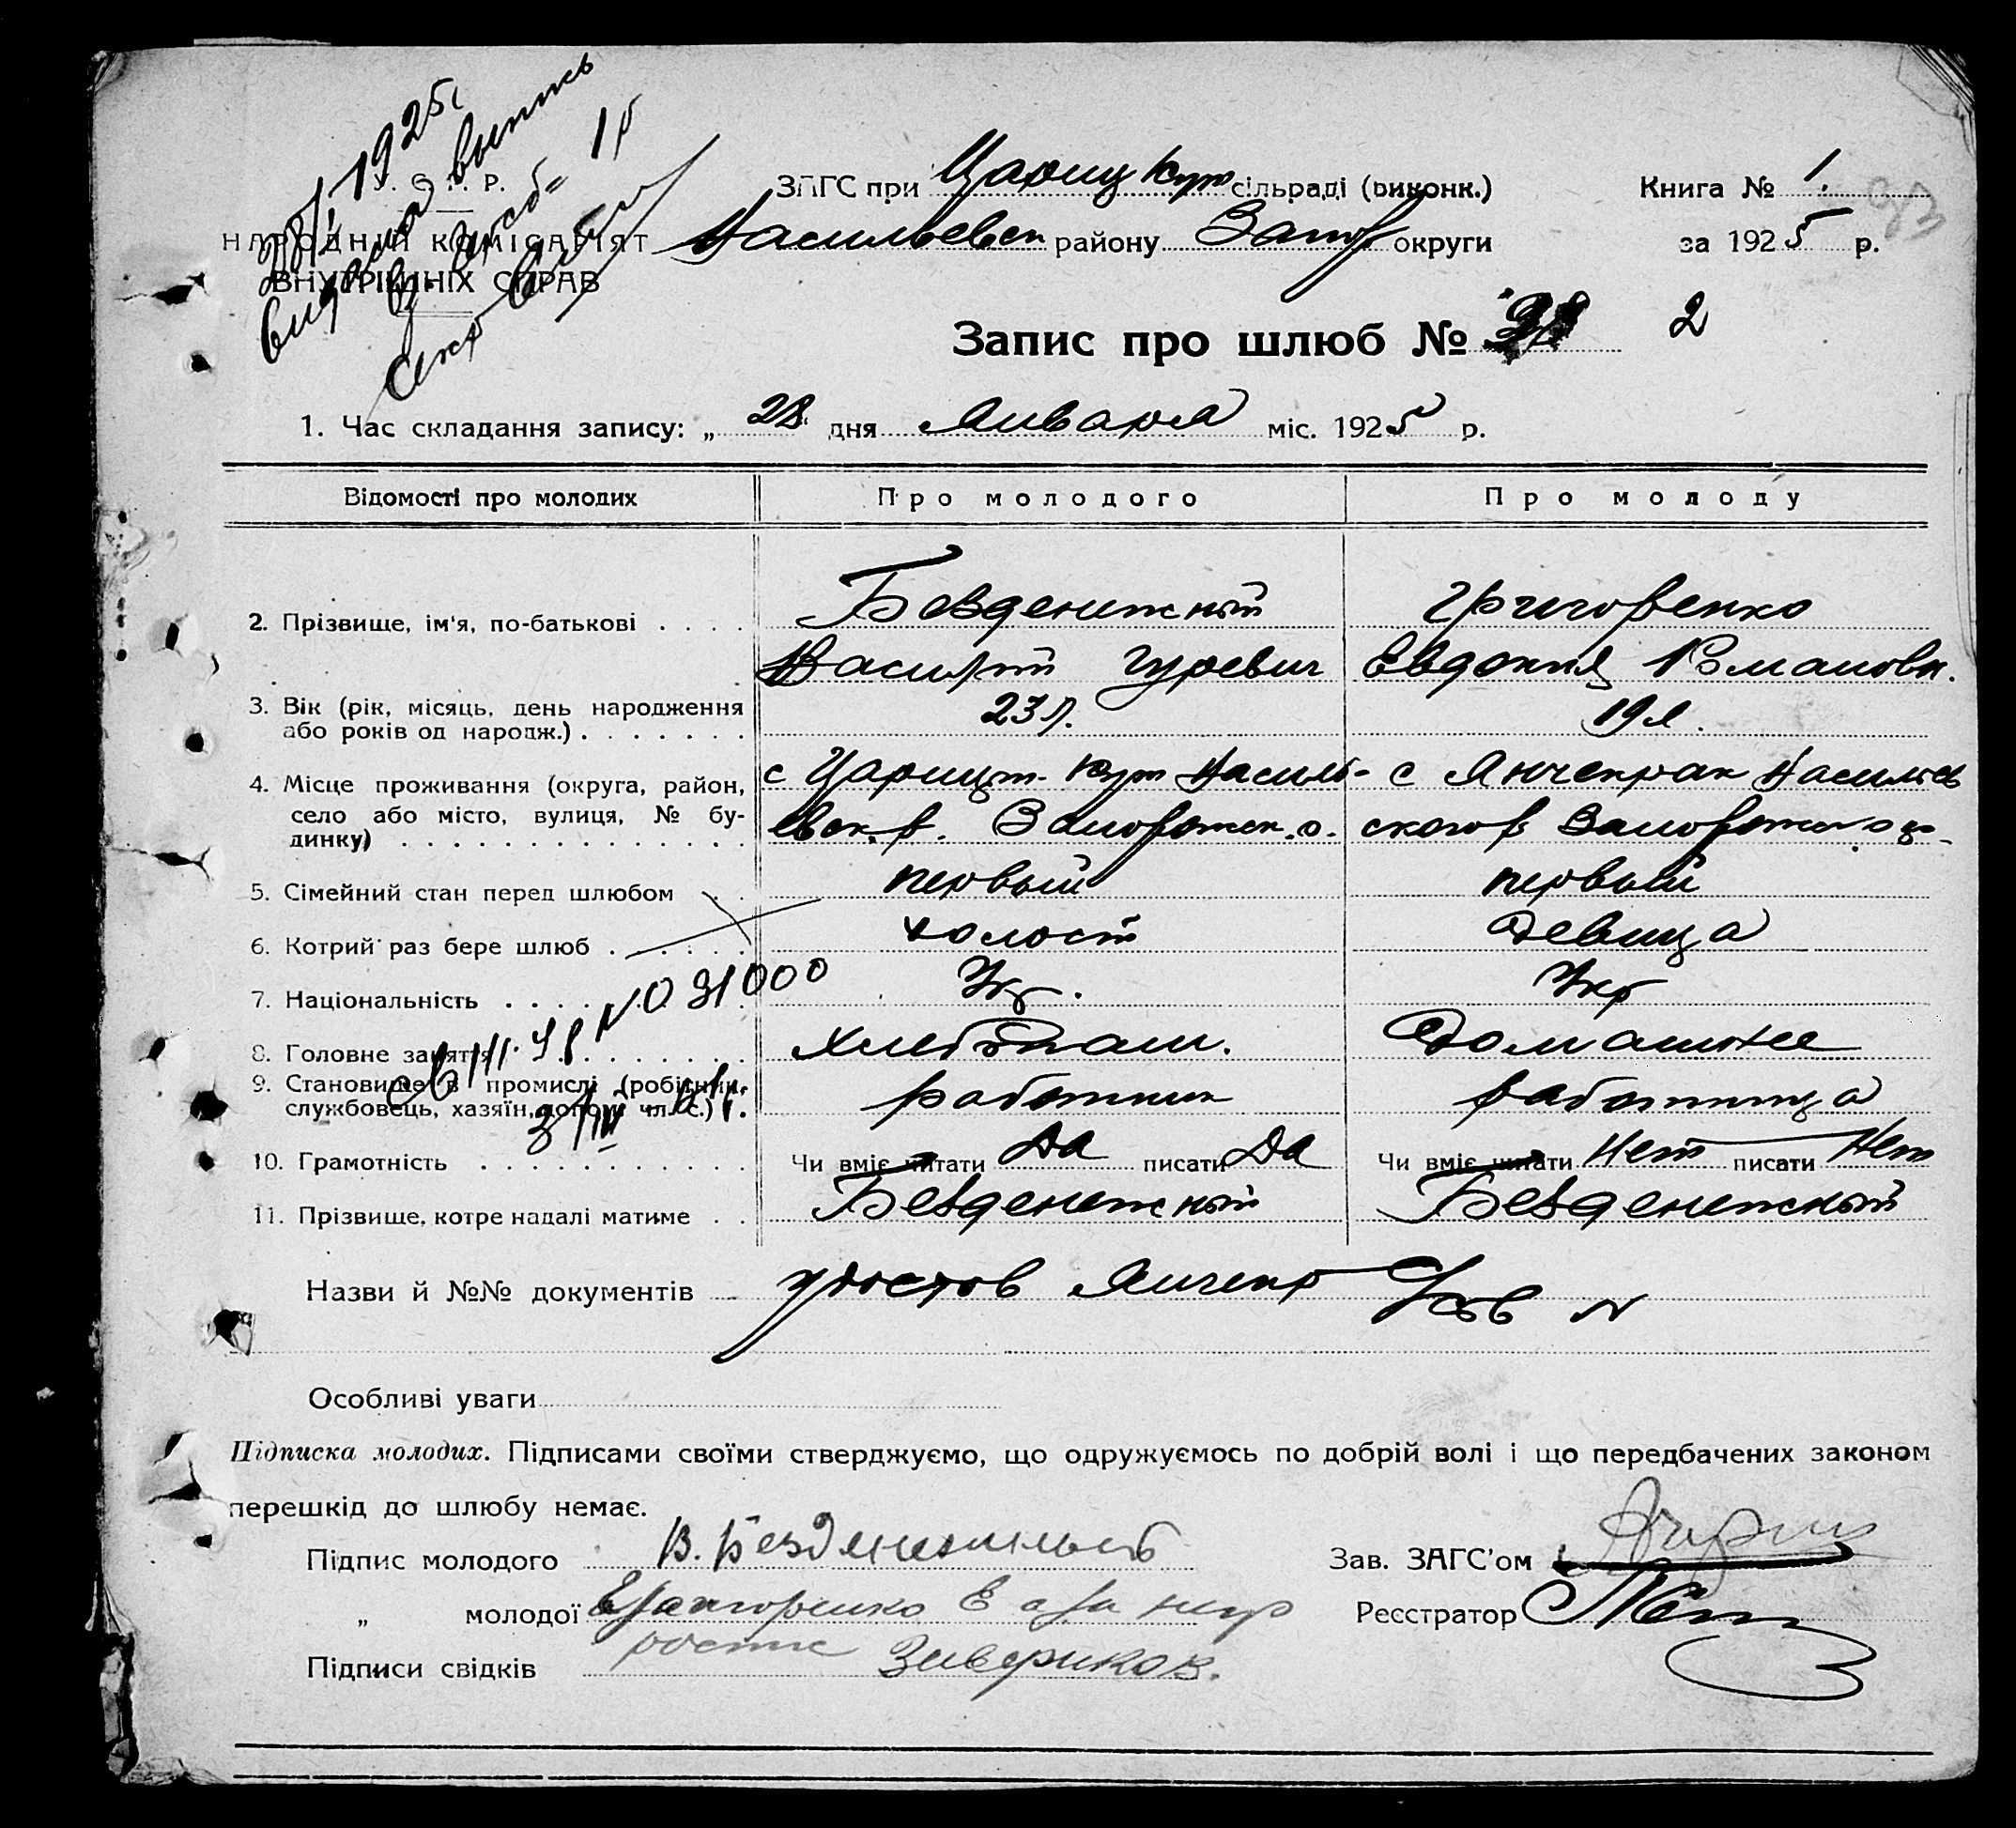 1925
выпись
У. С. Р. Р.
НАРОДНИЙ КОМІСАРІЯТ
ВНУТРІШНІХ СПРАВ
ЗАГС при Цариц Кут сільраді (виконк.)
Книга № 1.
Васильевск району Запор округи
за 1925 р.
Запис про шлюб №
2
1. Час складання запису: „ 28 дня Января міс. 1925 р.
Відомості про молодих Про молодого Про молоду
2. Прізвище, ім'я, по-батькові . . . . Безденежный Григоренко
Василий Гуревич Евдокия Романовн.
3. Вік (рік, місяць, день народження 23 л. 19 л.
або років од народж.) . . . . . . .
4. Місце проживання (округа, район, с Царицын. Кут Василь- с Янчекрак Васильев
село або місто, вулиця, № бу- евск. р. Запорожск. о. ского р Запорожск
динку) . . . . . . . . . . . . . .
5. Сімейний стан перед шлюбом . . первый первый
6. Котрий раз бере шлюб . . . . . холост Девица
7. Національність . . . . . . Укр. Укр
№ 031000
8. Головне заняття . . . . . . Хлебопаш. Домашнее
9. Становище в промислі (робітник, работник работница
службовець, хазяїн, допом. чл. с.) .
10. Грамотність . . . . . . . . . . Чи вміє читати Да писати Да Чи вміє читати Нет писати Нет
11. Прізвище, котре надалі матиме . . Безденежный Безденежный
Назви й №№ документів удостов Янчекр
Особливі уваги
Підписка молодих. Підписами своїми стверджуємо, що одружуємось по добрій волі і що передбачених законом
перешкід до шлюбу немає.
Підпис молодого В. Безденежный
Зав. ЗАГС'ом
„ молодої Григоренко Е а за негр
Реєстратор
Підписи свідків роспис